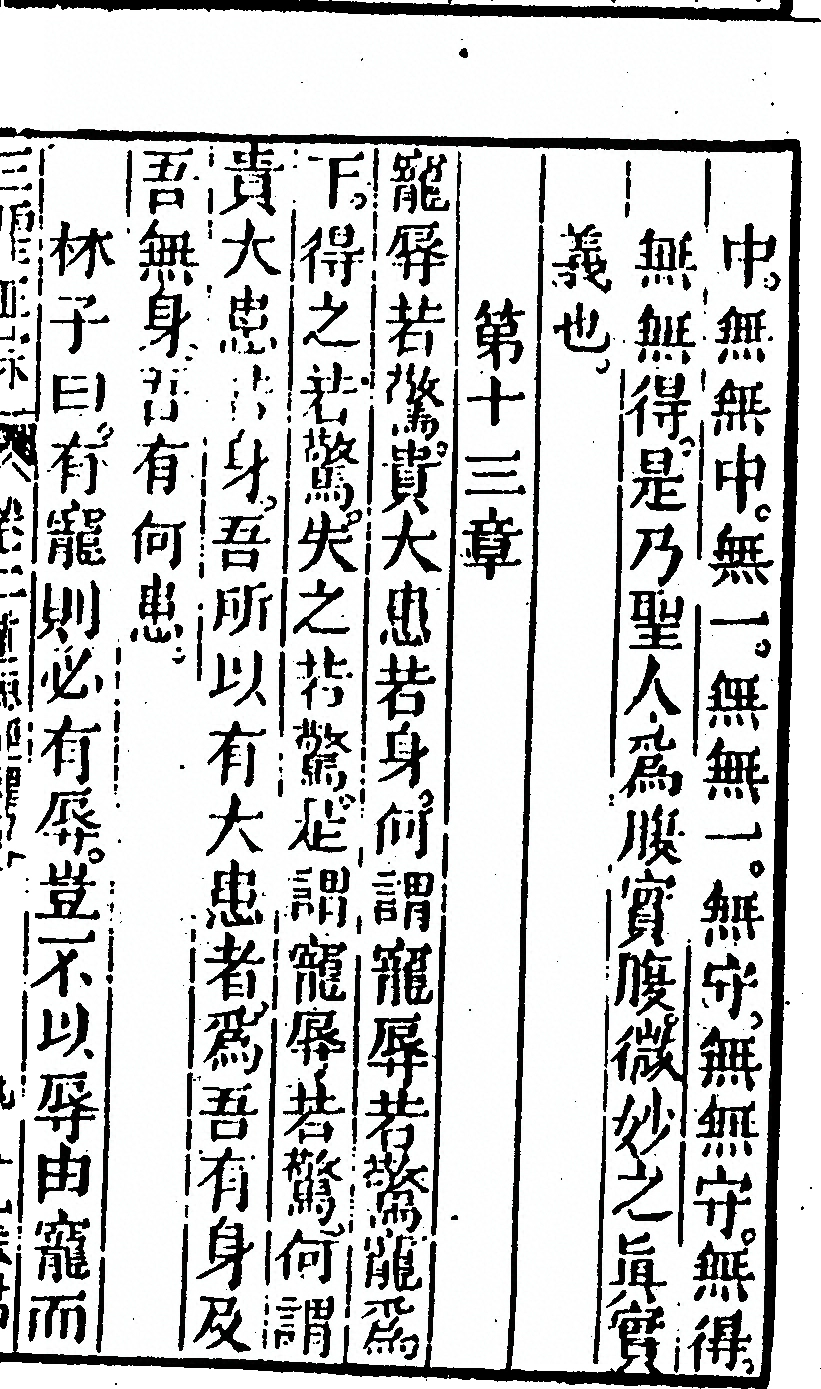 中。無無中。無一。無無一。無守。無無守。無得。
無無得。是乃聖人爲腹實腹。微妙之眞實
義也。
第十三章
寵辱若驚。貴大患若身。何謂寵辱若驚。寵爲
下。得之若驚。失之若驚。是謂寵辱若驚。何謂
貴大患若身。吾所以有大患者。爲吾有身。及
吾無身。吾有何患。
林子曰。有寵則必有辱。豈不以辱由寵而